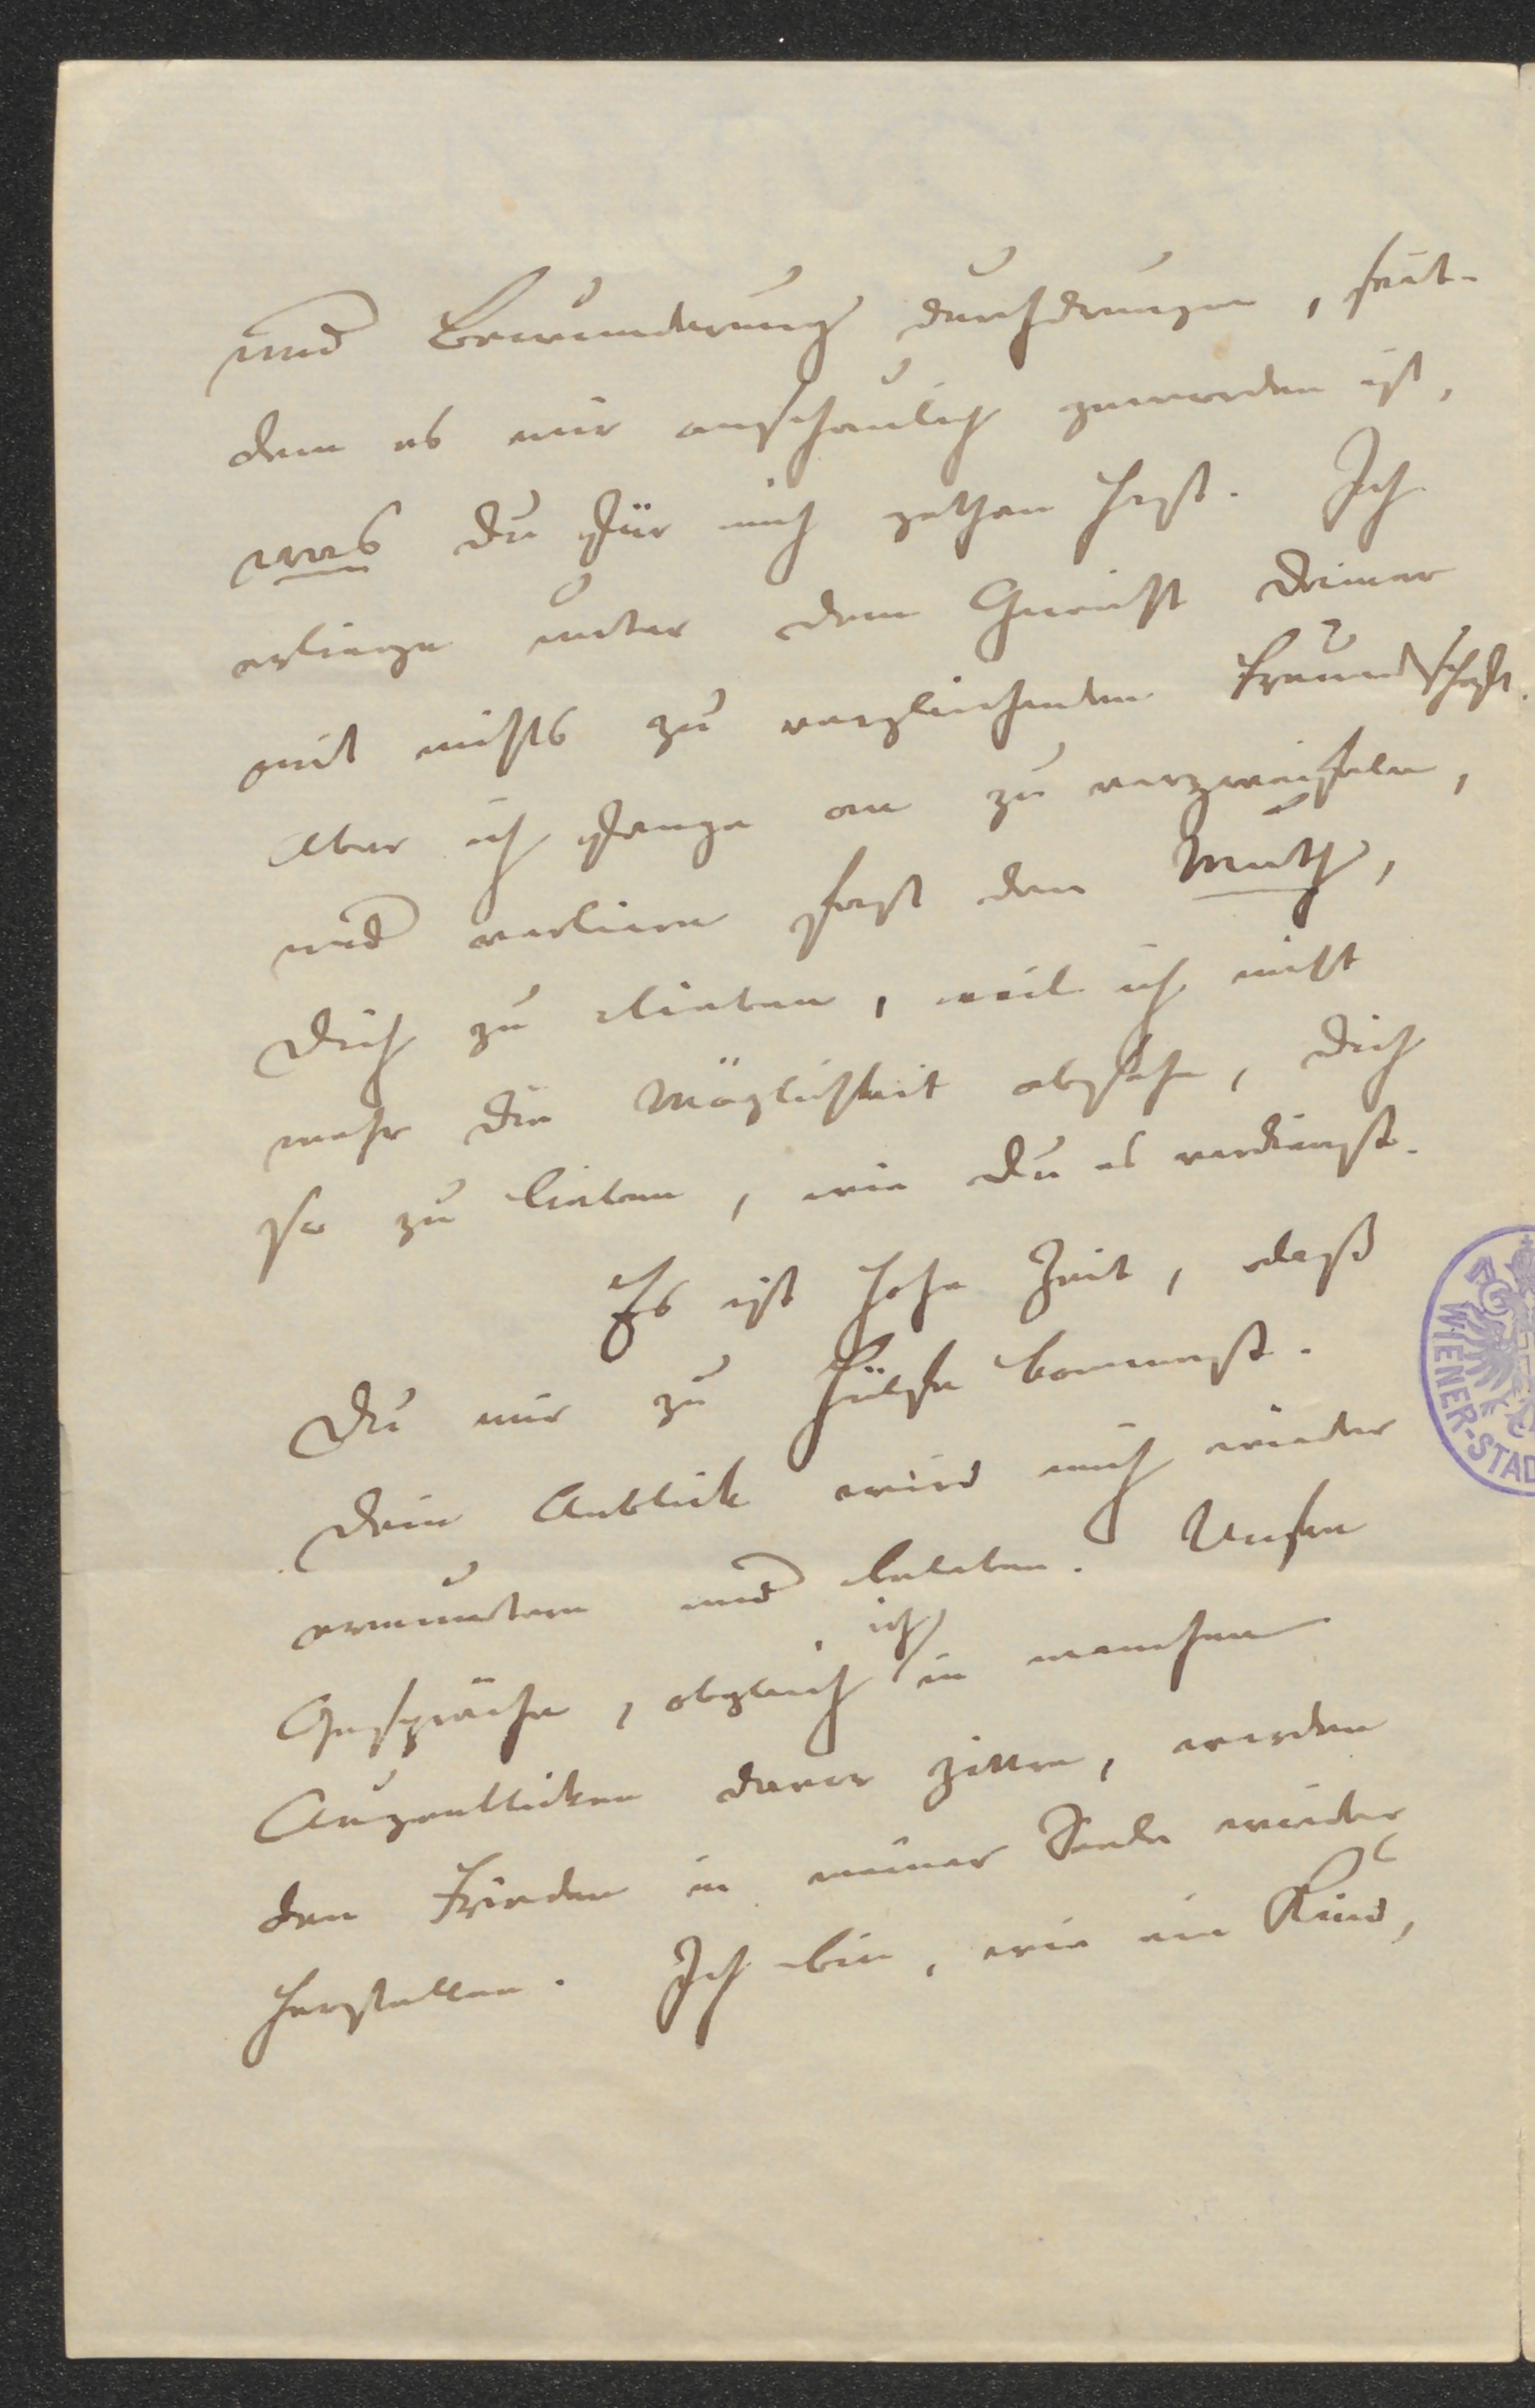 und Bewunderung durchdrungen, seit-
dem es mir anschaulich geworden ist,
was Du für mich gethan hast. Ich
erliege unter dem Gewicht Deiner
mit nichts zu vergleichenden Freundschaft.
Aber ich fange an zu verzweifeln,
und verliere fast den Muth,
Dich zu lieben, weil ich nicht
mehr die Möglichkeit absehe, Dich
so zu lieben, wie Du es verdienst.
Es ist hohe Zeit, daß
Du mir zu Hülfe kommst.
Dein Anblick wird mich wieder
ermuntern und beleben. Unsere
Gespräche, obgleich ich in manchen
Augenblicken davor zittre, werden
den Frieden in meiner Seele wieder
herstellen. Ich bin, wie ein Kind,
WIENER-STAD